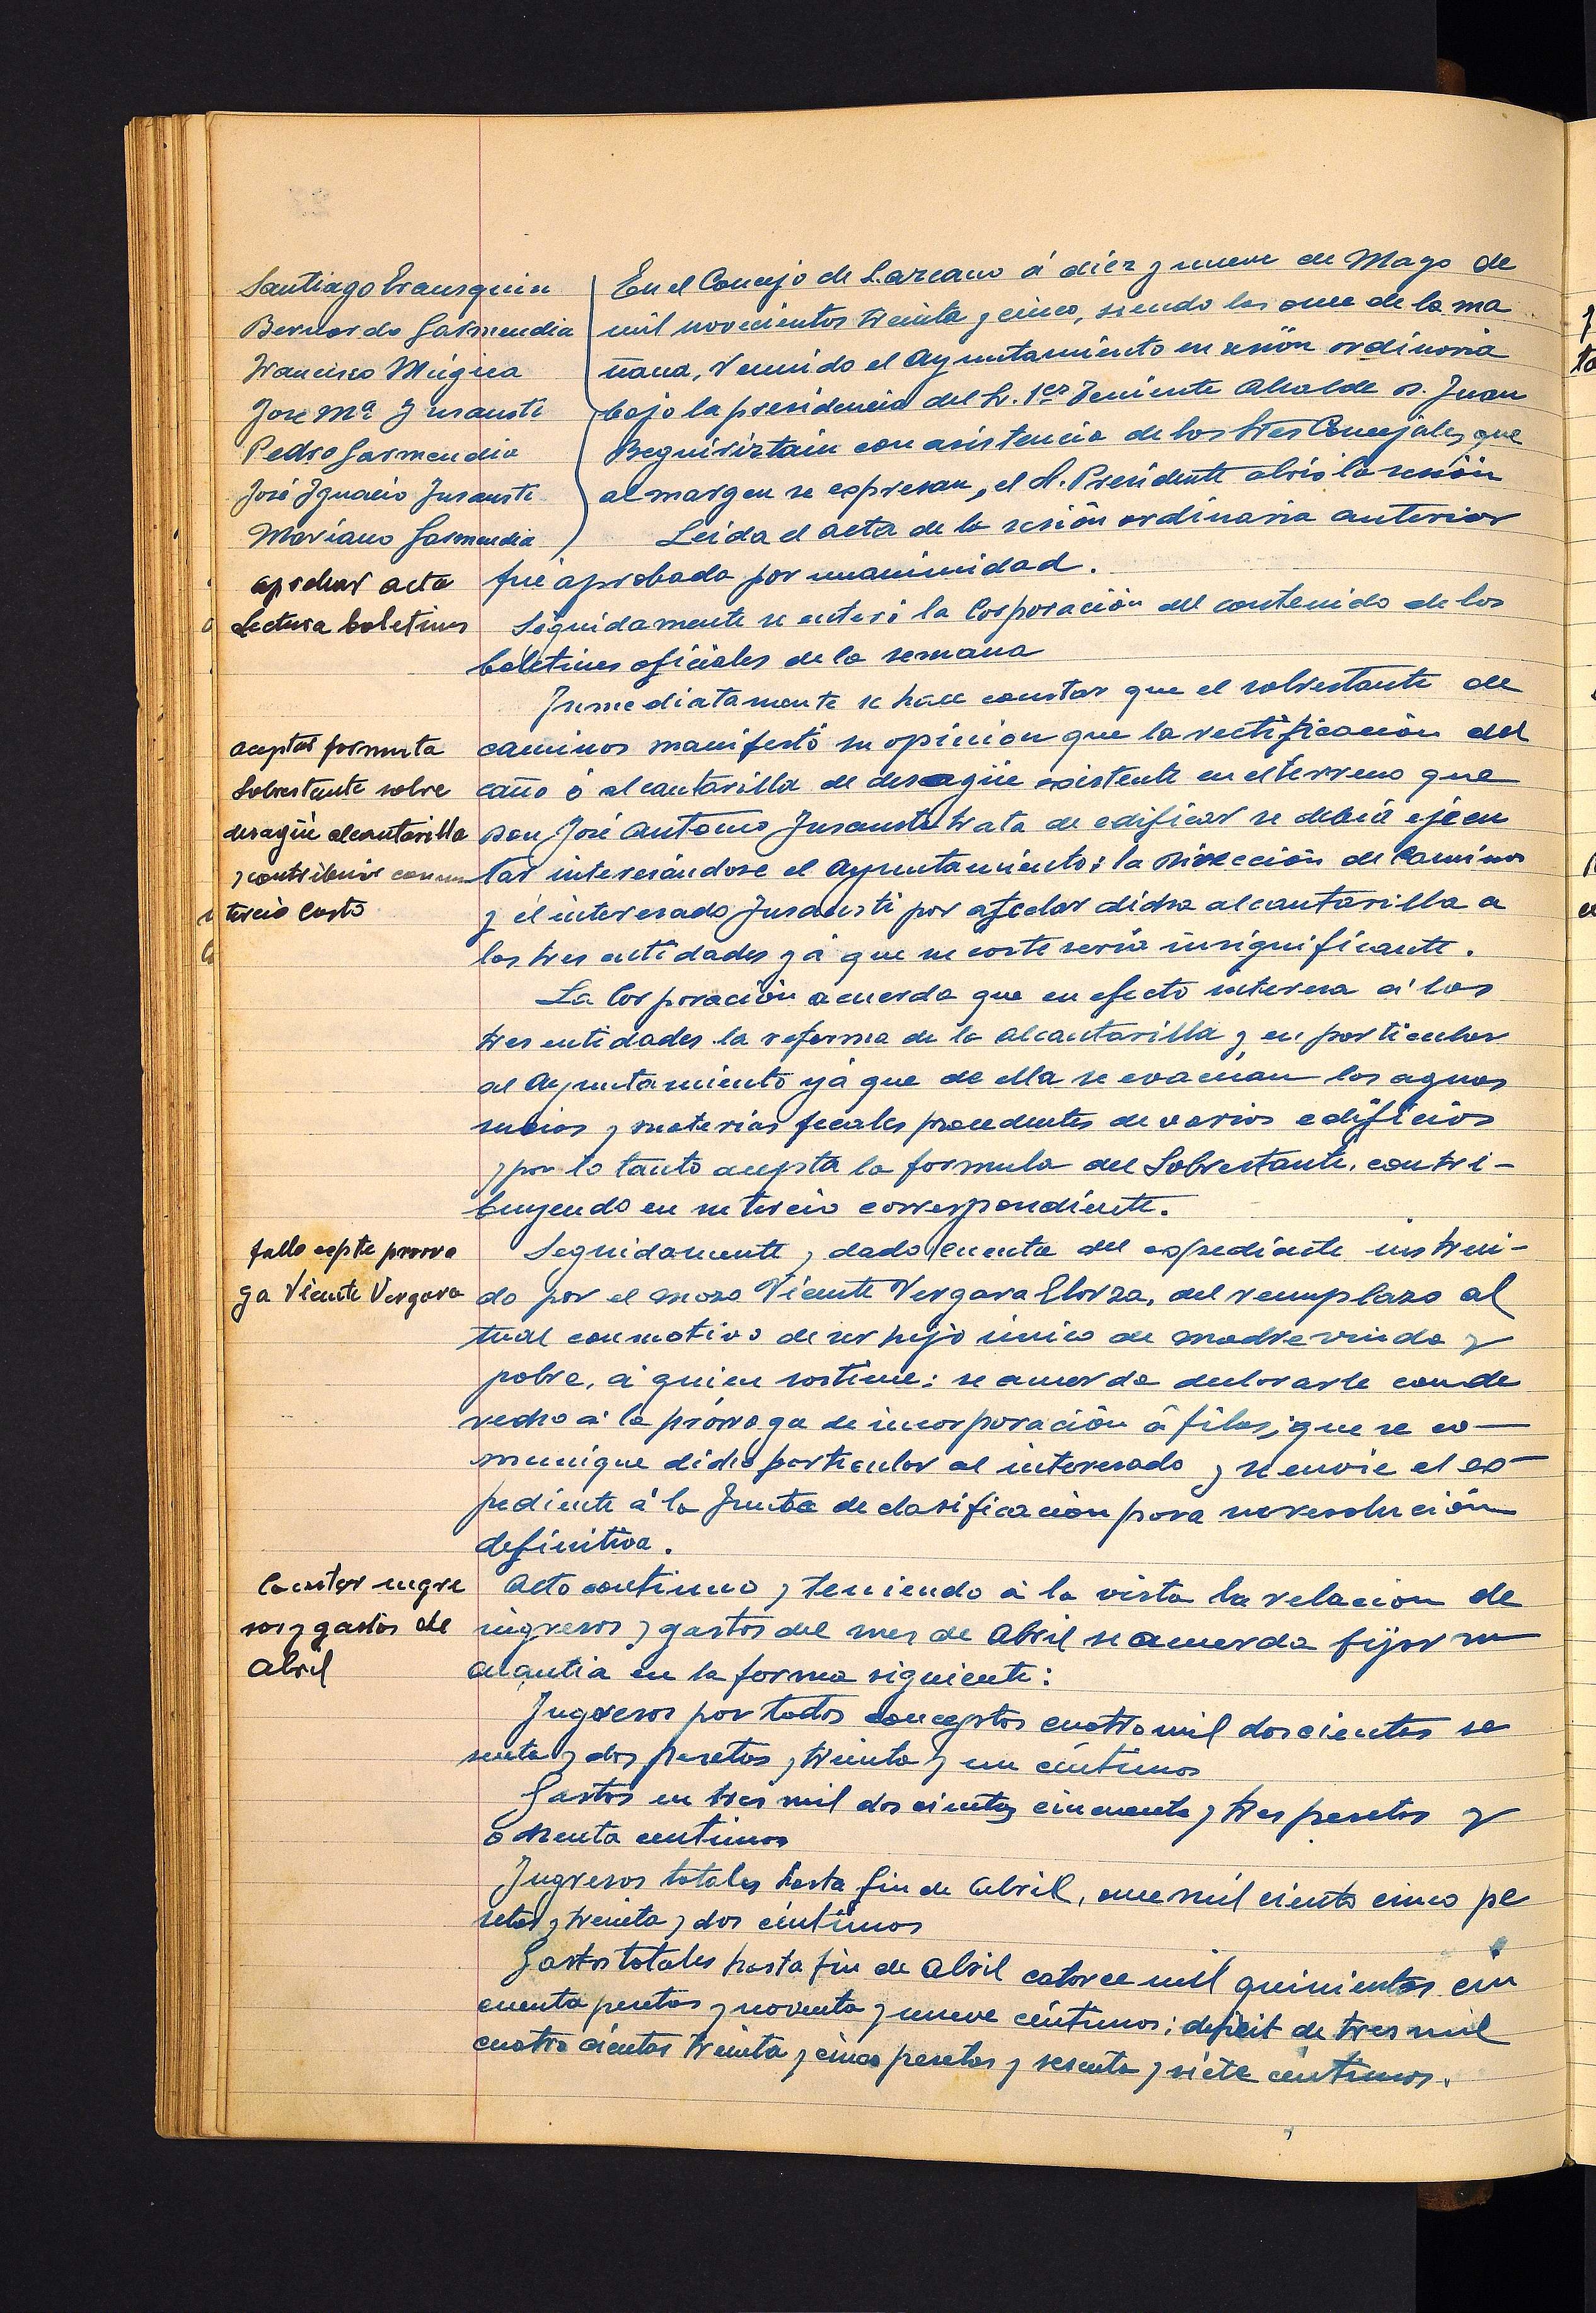 Santiago Irausquin
Bernardo Garmendia
Francisco Múgica
José Mª Insausti
Pedro Garmendia
José Ignacio Insausti
Mariano Garmendia
En el Concejo de Lazcano á diez y nueve de Mayo de
mil novecientos treinta y cinco, siendo las once de la ma
ñana, reunido el Ayuntamiento en sesión ordinaria
bajo la presidencia del Sr. 1er Teniente Alcalde D. Juan
Beguiristain con asistencia de los Sres Concejales que
al margen se expresan, el Sr. Presidente abrió la sesión
Leida el acta de la sesión ordinaria anterior
aprobar acta
fué aprobada por unanimidad.
Lectura boletines
Seguidamente se enteró la Corporación del contenido de los
boletines oficiales de la semana
Inmediatamente se hace constar que el sobrestante de
aceptar formula
Sobrestante sobre
desagüe alcantarilla
y contribuir con un
tercio costo
caminos manifestó su opinion que la rectificación del
caño ó alcantarilla de desagüe existente en el terreno que
Don José Antonio Insausti trata de edificar se debia ejecu
tar interesándose el Ayuntamiento; la Dirección de Caminos
y el interesado Insausti por afectar dicha alcantarilla a
las tres entidades yá que su coste seria insignificante.
La Corporación acuerda que en efecto interesa á las
tres entidades la reforma de la alcantarilla y en particular
al Ayuntamiento yá que de ella se evacuan las aguas
sucias y materias fecales procedentes de varios edificios
y por lo tanto acepta la formula del Sobrestante, contri-
buyendo en su tercio correspondiente.
fallo expte prorro
ga Vicente Vergara
Seguidamente y dado cuenta del expediente instrui-
do por el mozo Vicente Vergara Elorza, del reemplazo al
tual con motivo de ser hijo único de madre viuda y
pobre, á quien sostiene: se acuerda declararle con de
recho á la prórroga de incorporación á filas; que se co-
munique dicho particular al interesado y se envie el ex-
pediente á la Junta de clasificacion para su resolución
definitiva.
Constar ingre
sos y gastos de
Abril
Acto continuo y teniendo á la vista la relacion de
ingresos y gastos del mes de Abril se acuerda fijar su
cuantia en la forma siguiente:
Ingresos por todos conceptos cuatro mil doscientas se
senta y dos pesetas y treinta y un céntimos
Gastos en tres mil doscientas cincuenta y tres pesetas y
ochenta centimos
Ingresos totales hasta fin de Abril, once mil ciento cinco pe
setas y treinta y dos céntimos
Gastos totales hasta fin de Abril catorce mil quinientas cin
cuenta pesetas y noventa y nueve céntimos: deficit de tres mil
cuatro cientas treinta y cinco pesetas y sesenta y siete céntimos.